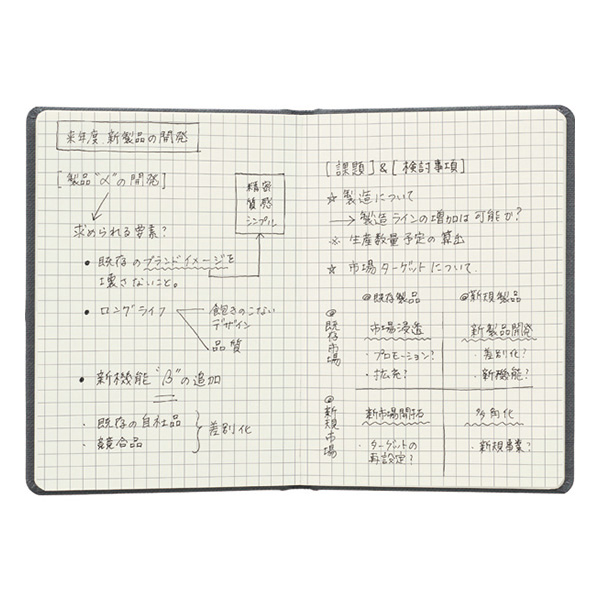 来年度 新製品の開発
[製品"α"の開発]
精密
質感
シンプル
求められる要素?
・既存のブランドイメージを
壊さないこと。
・ロングライフ
飽きのこない
デザイン
品質
・新機能"β"の追加
・既存の自社品
・競合品
差別化
[課題]&[検討事項]
☆製造について
→製造ラインの増加は可能か?
※生産数量予定の算出
☆市場ターゲットについて
@既存製品 @新規製品
@既存市場
市場浸透
・プロモーション?
・拡売?
新製品開発
・差別化?
・新機能?
@新規市場
新市場開拓
・ターゲットの
再設定?
多角化
・新規事業?